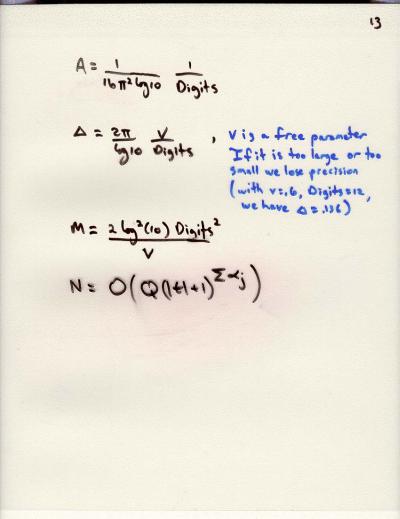 13
A = 1/(16π² log 10) 1/Digits
Δ = 2π/log 10 v/Digits , v is a free parameter
If it is too large or too
small we lose precision
(with v=.6, Digits=12,
we have Δ=.136)
M = 2 log²(10) Digits²/v
N = O(Q(|t|+1)^{Σ αj})